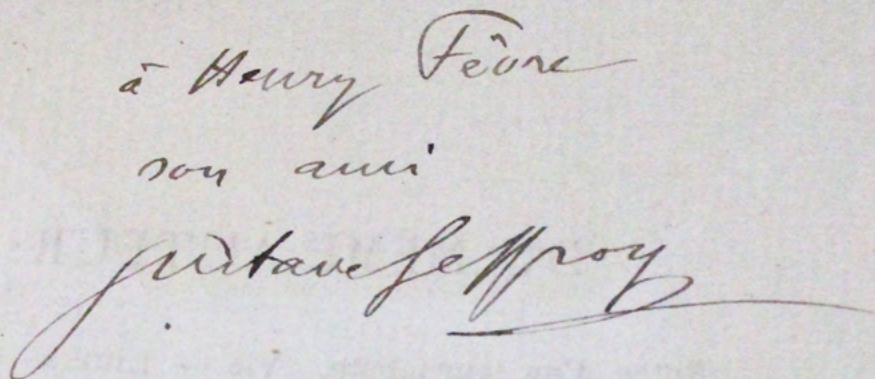 à Henry Fêvre
son ami
Gustave Geffroy